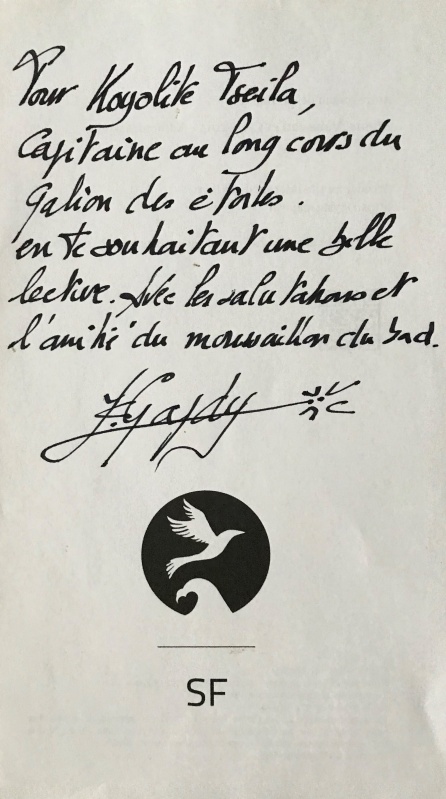 Pour Koyolite Tseila,
Capitaine au long cours du
Galion des étoiles.
en te souhaitant une belle
lecture. Avec les salutations et
l'amitié du moussaillon du Sud.
SF